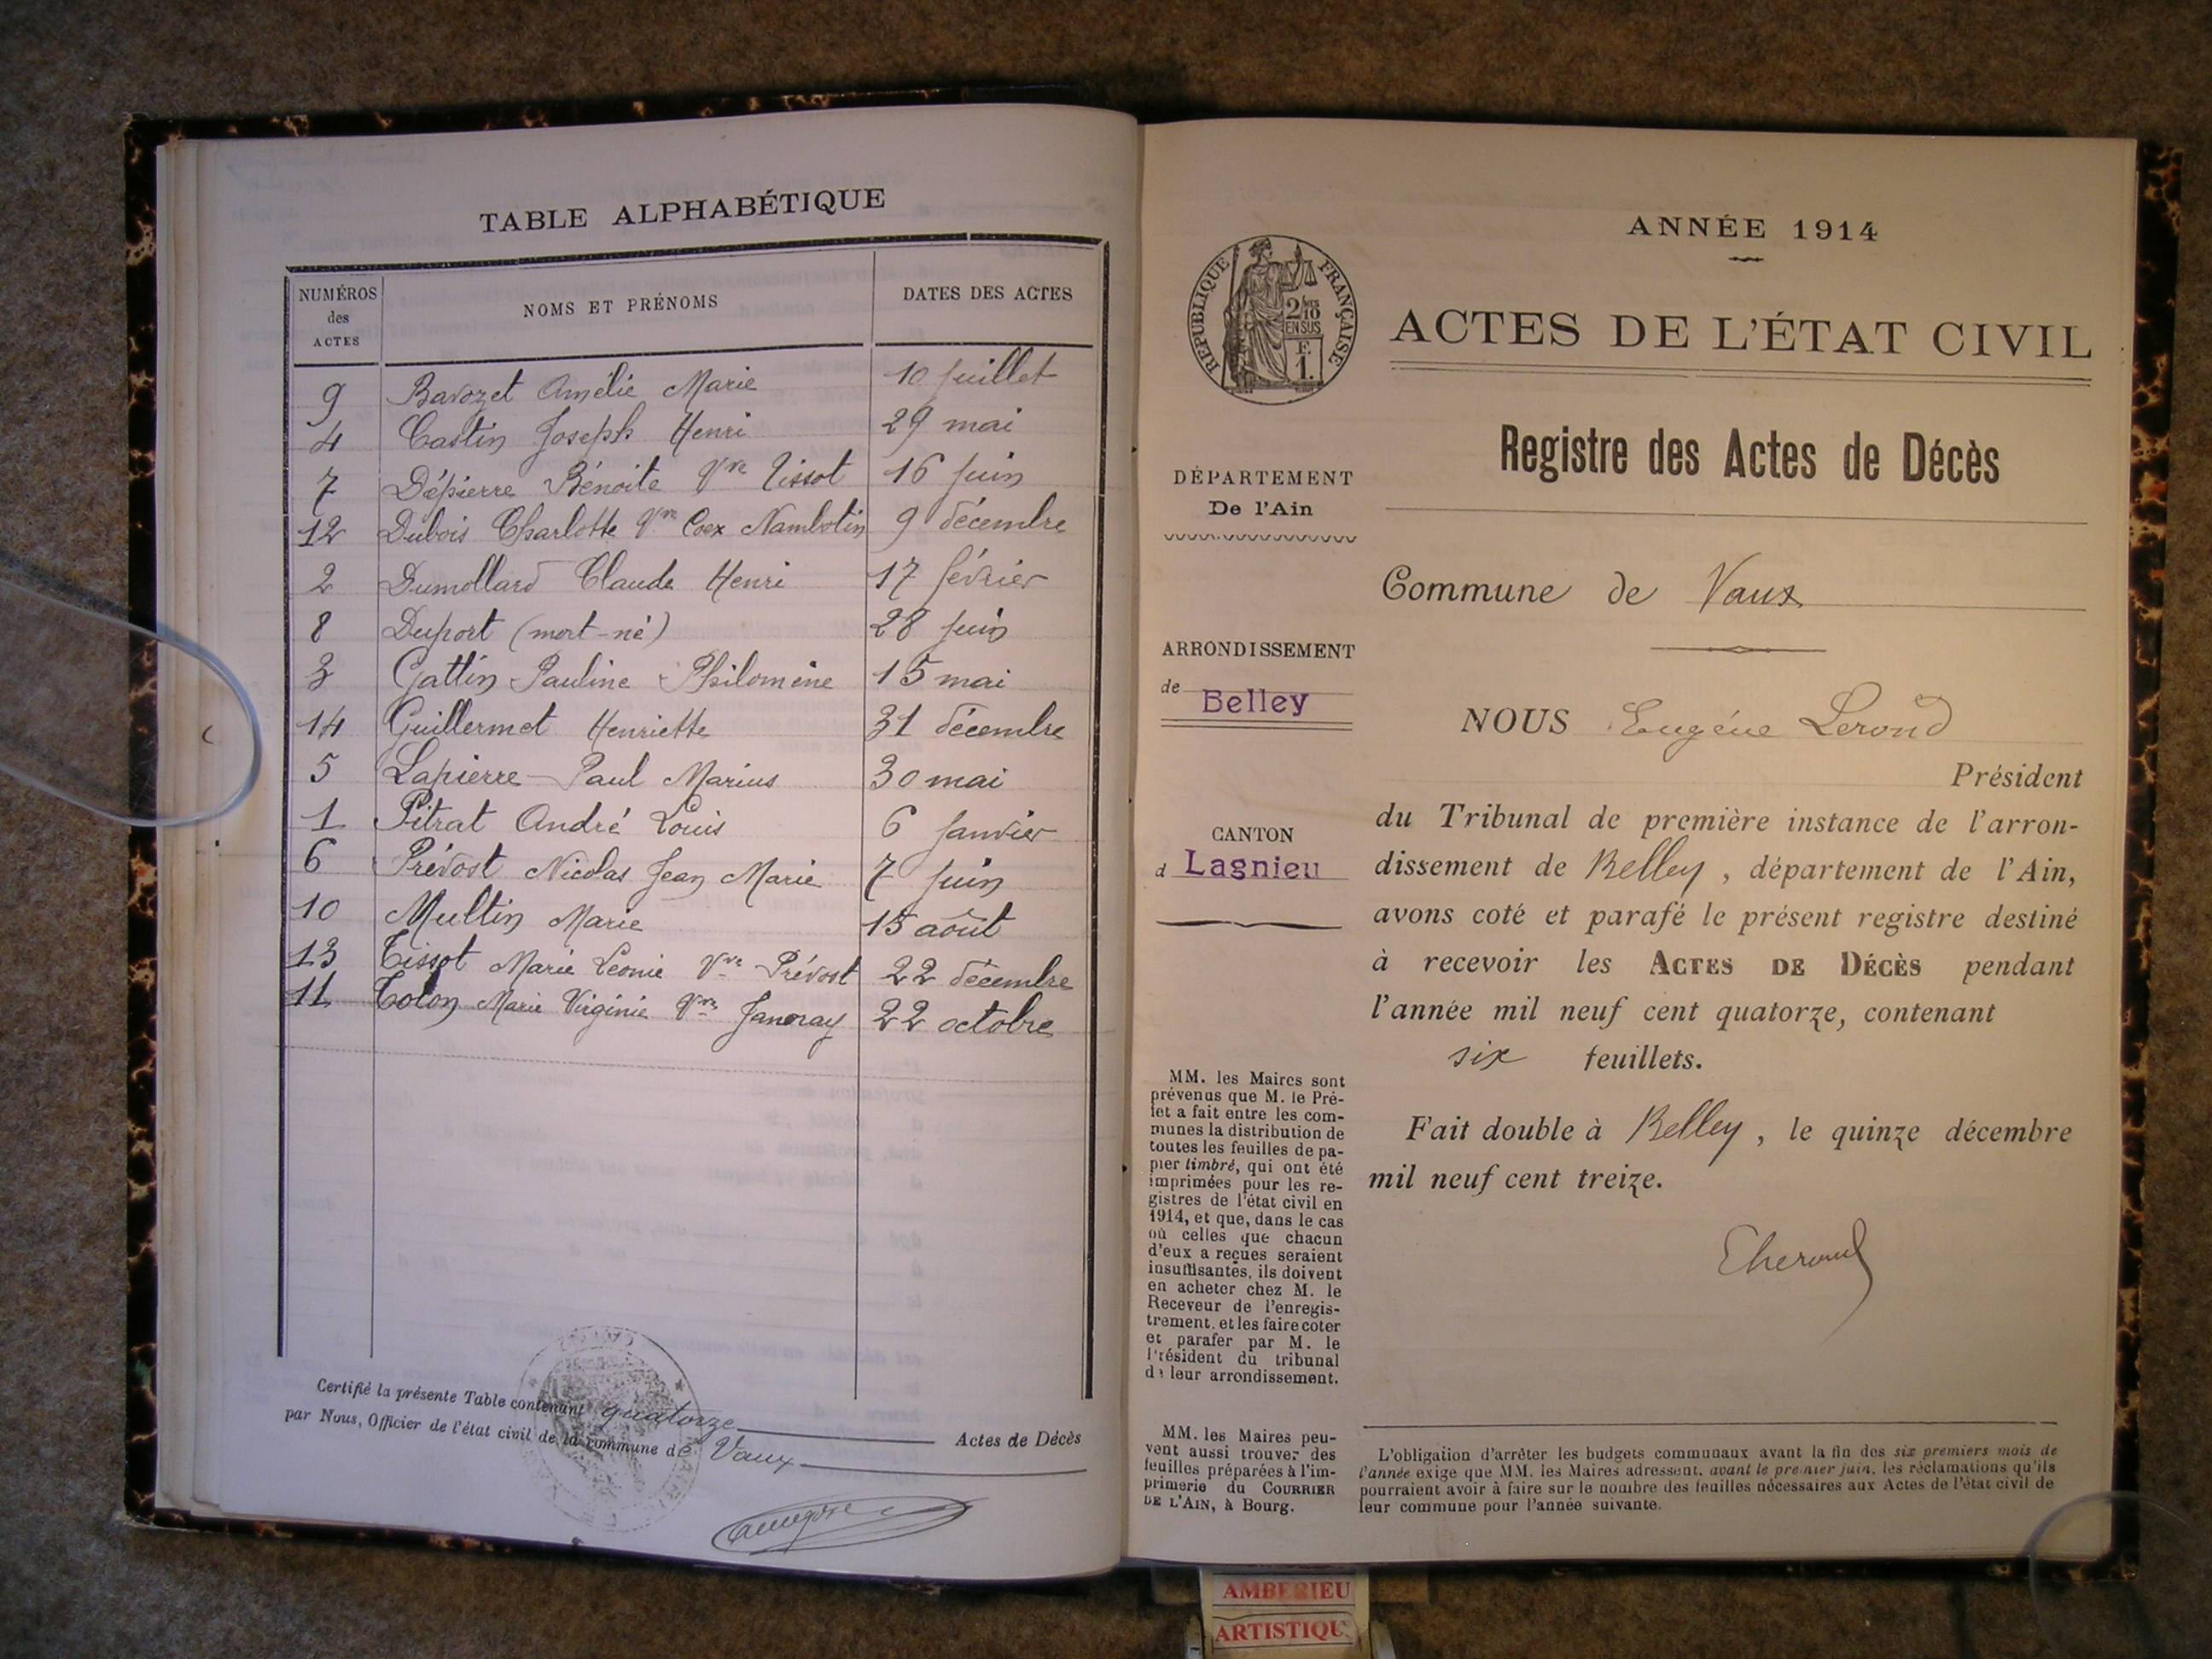 TABLE ALPHABÉTIQUE
NUMÉROS des ACTES | NOMS ET PRÉNOMS | DATES DES ACTES
9 Bavozet Amélie Marie 10 juillet
4 Castin Joseph Henri 29 mai
7 Dépierre Bénoite Vve Tissot 16 juin
12 Dubois Charlotte Vve Coex Nambotin 9 décembre
2 Dumollard Claude Henri 17 février
8 Duport (mort-né) 28 juin
3 Gattin Pauline Philomène 15 mai
14 Guillermet Henriette 31 décembre
5 Lapierre Paul Marius 30 mai
1 Pitrat André Louis 6 janvier
6 Prévost Nicolas Jean Marie 7 juin
10 Multin Marie 15 août
13 Tissot Marie Leonie Vve Prévost 22 décembre
11 Colon Marie Virginie Vve Janeray 22 octobre
Certifié la présente Table contenant quatorze Actes de Décès
par Nous, Officier de l'état civil de la commune de Vaux
ANNÉE 1914
RÉPUBLIQUE FRANÇAISE
2/10
EN SUS
F.
1.
ACTES DE L'ÉTAT CIVIL
Registre des Actes de Décès
DÉPARTEMENT
De l'Ain
Commune de Vaux
ARRONDISSEMENT
de Belley
NOUS Eugéne Lerond
Président
CANTON
d Lagnieu
du Tribunal de première instance de l'arron-
dissement de Belley, département de l'Ain,
avons coté et parafé le présent registre destiné
à recevoir les ACTES DE DÉCÈS pendant
l'année mil neuf cent quatorze, contenant
six feuillets.
Fait double à Belley, le quinze décembre
mil neuf cent treize.
MM. les Maires sont
prévenus que M. le Pré-
fet a fait entre les com-
munes la distribution de
toutes les feuilles de pa-
pier timbré, qui ont été
imprimées pour les re-
gistres de l'état civil en
1914, et que, dans le cas
où celles que chacun
d'eux a reçues seraient
insuffisantes, ils doivent
en acheter chez M. le
Receveur de l'enregis-
trement. et les faire coter
et parafer par M. le
Président du tribunal
de leur arrondissement.
MM. les Maires peu-
vent aussi trouver des
feuilles préparées à l'im-
primerie du COURRIER
DE L'AIN, à Bourg.
L'obligation d'arrêter les budgets communaux avant la fin des six premiers mois de
l'année exige que MM. les Maires adressent, avant le premier juin, les réclamations qu'ils
pourraient avoir à faire sur le nombre des feuilles nécessaires aux Actes de l'état civil de
leur commune pour l'année suivante.
AMBERIEU
ARTISTIQU